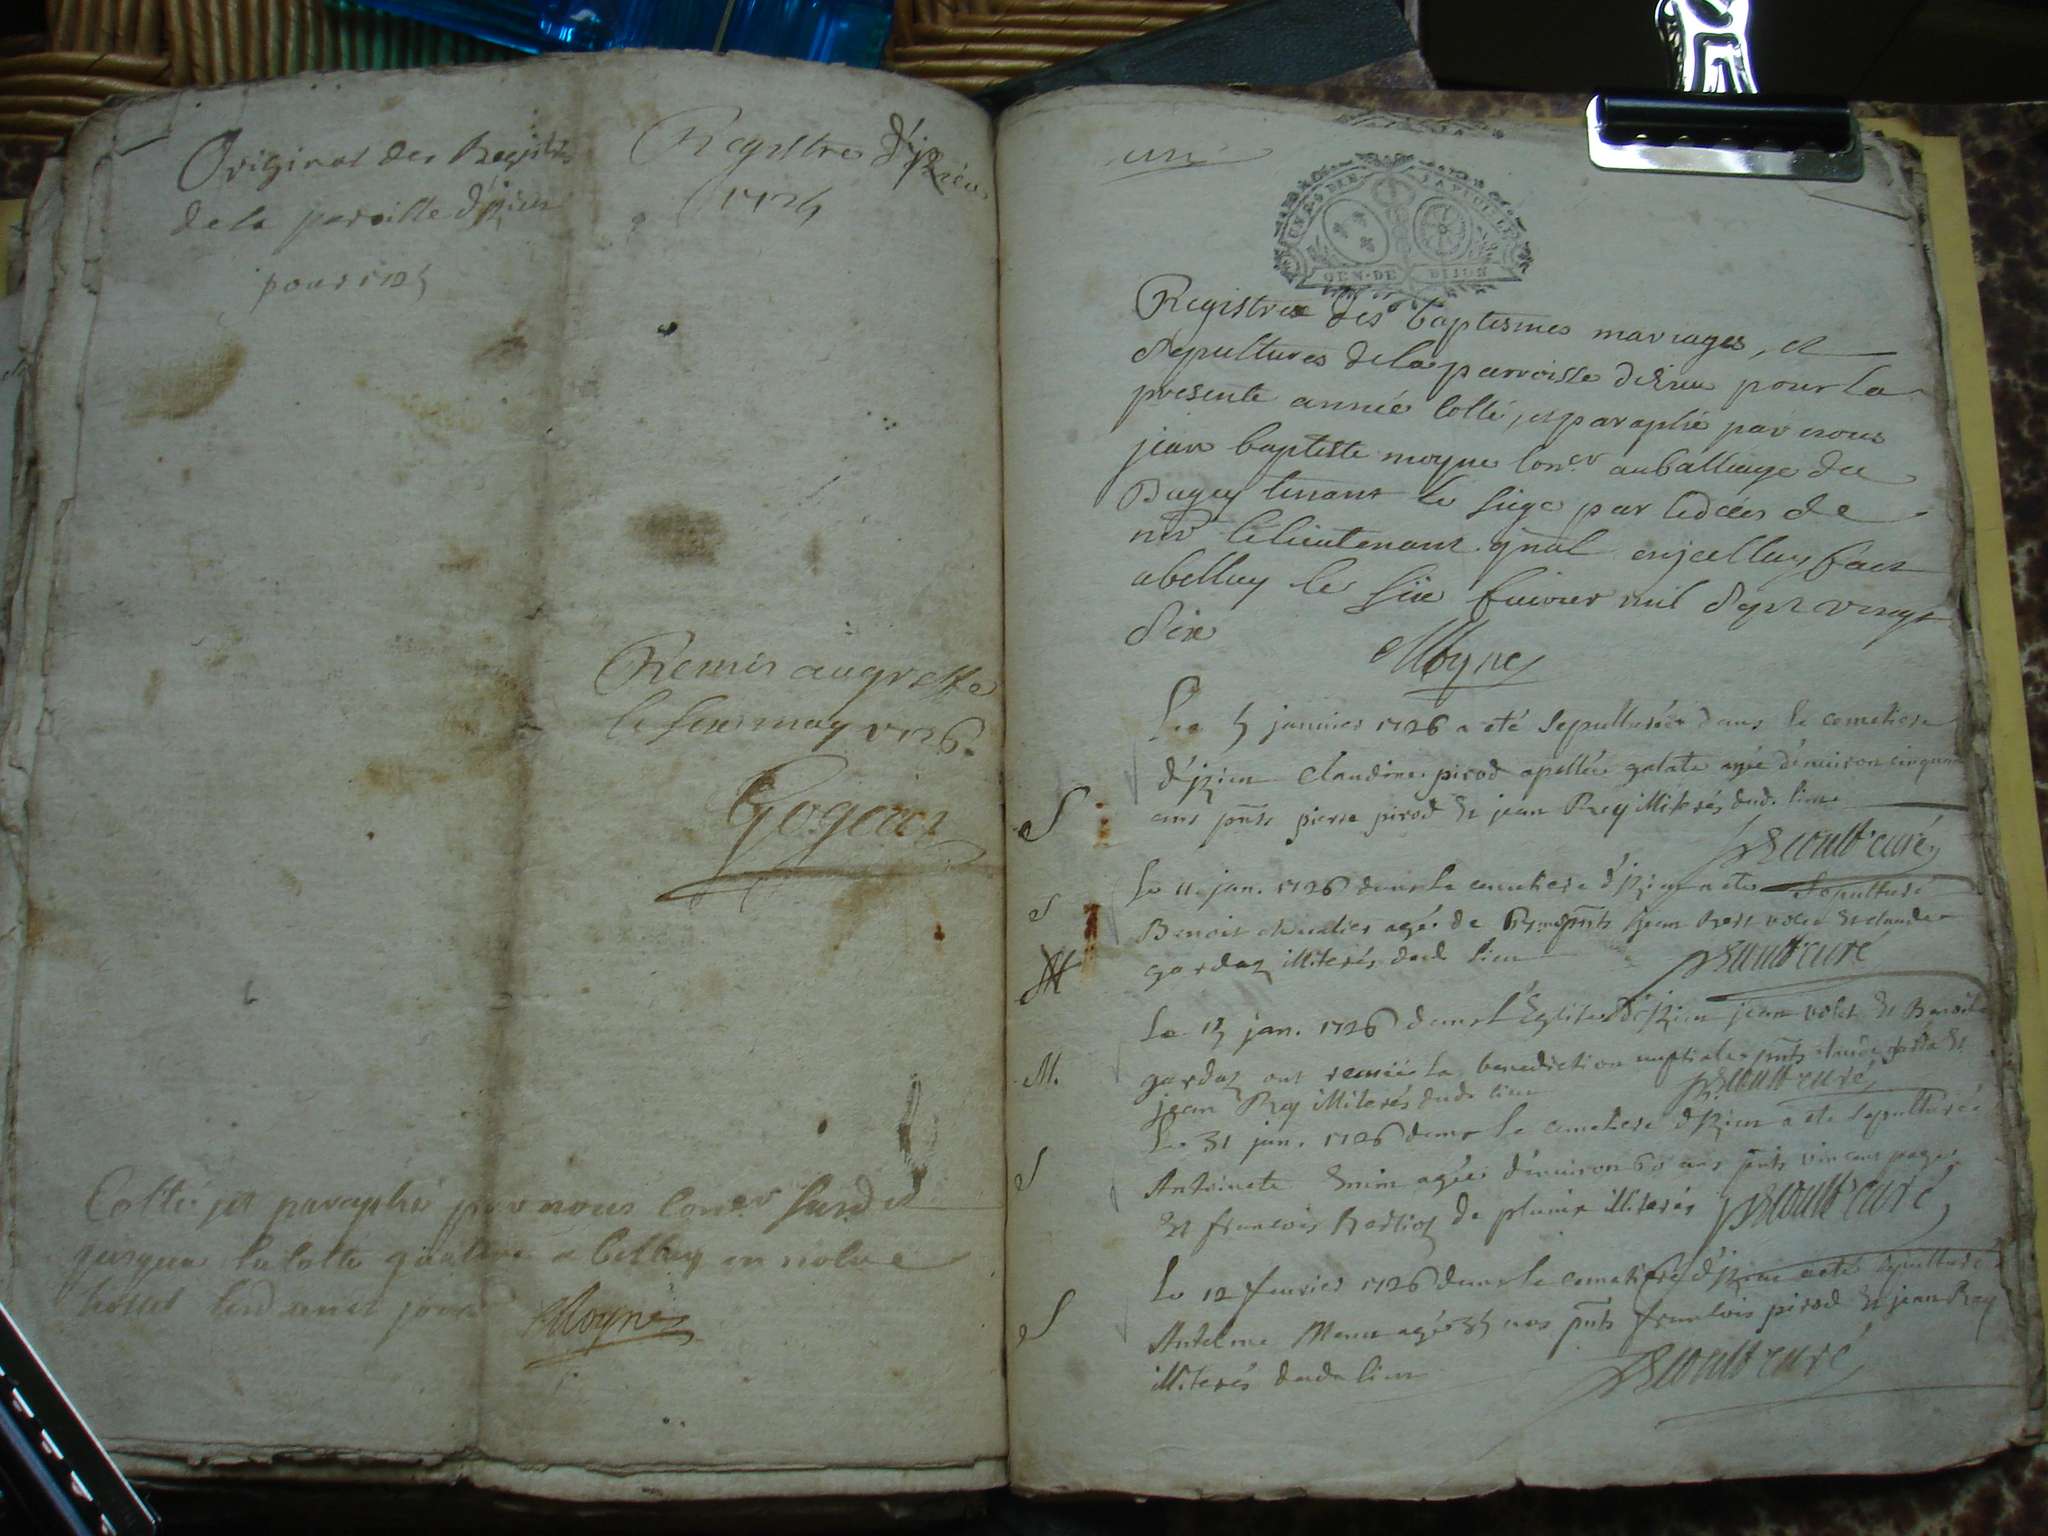 Original des Registres
de la paroisse d'Izieu
pour 1725
Registres d'Izieu
1725
Remis au greffe
le six may 1726.
Cotté et paraphé par nous Con.er susd et
jusques la cotte quatrieme a belley en nostre
hostel lesd an et jour
Moyne
une
GEN. DE DIJON
Registre des baptesmes mariages, et
sepultures de la parroisse de Zieu pour la
presente année cotté, et paraphé par nous
jean baptiste moyne con.er au balliage du
Bugey tenant le siege par le deces de
mr le lieutenant gnal en jcelluy fact
a belley le six feuvrier mil sept vingt
six
Moyne
S
Le 5 janvier 1726 a eté sepulturée dans le cemetiere
d'Izieu Claudine pirod apellée galate agée d'environ cinquante
ans pnts pierre pirod et jean Rey illiterés dud. lieu
curé
S
Le 11 jan. 1726 dans le cemetiere d'Izieu a eté sepulturé
Benoit chevalier agé de pnts jean volet et claude
M
gardaz illiterés dud lieu
curé
Le 15 jan. 1726 dans l'Eglise d'Izieu jean volet et Benoite
M.
gardaz ont receu la benediction nuptiale pnts claude et
jean Rey illiterés dud. lieu
curé
Le 31 jan. 1726 dans le cemetiere d'Izieu a eté sepulturée
S
Antoinete agée d'environ 60 ans pnts vincent pages
et francois de illiterés
curé
Le 12 fevrier 1726 dans le cemetiere d'Izieu a eté sepulturé
S
Antelme agé 35 ans pnts francois pirod et jean Rey
illiterés dud. lieu
curé